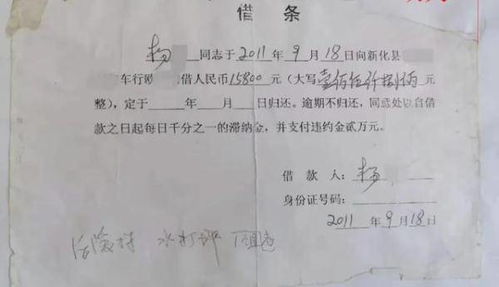 借条
杨 同志于2011年9月18日向新化县
车行欧 借人民币15800元(大写壹 元
整),定于 年 月 日归还。逾期不归还,同意处以自借
款之日起每日千分之一的滞纳金,并支付违约金贰万元。
借款人:杨
身份证号码:
2011年9月18日